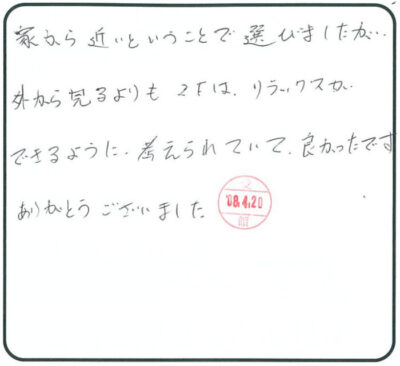 家から近いということで選びましたが…
外から見るよりも 2Fは、リラックスが
できるように、考えられていて、良かったです
ありがとうございました
'08.4.20